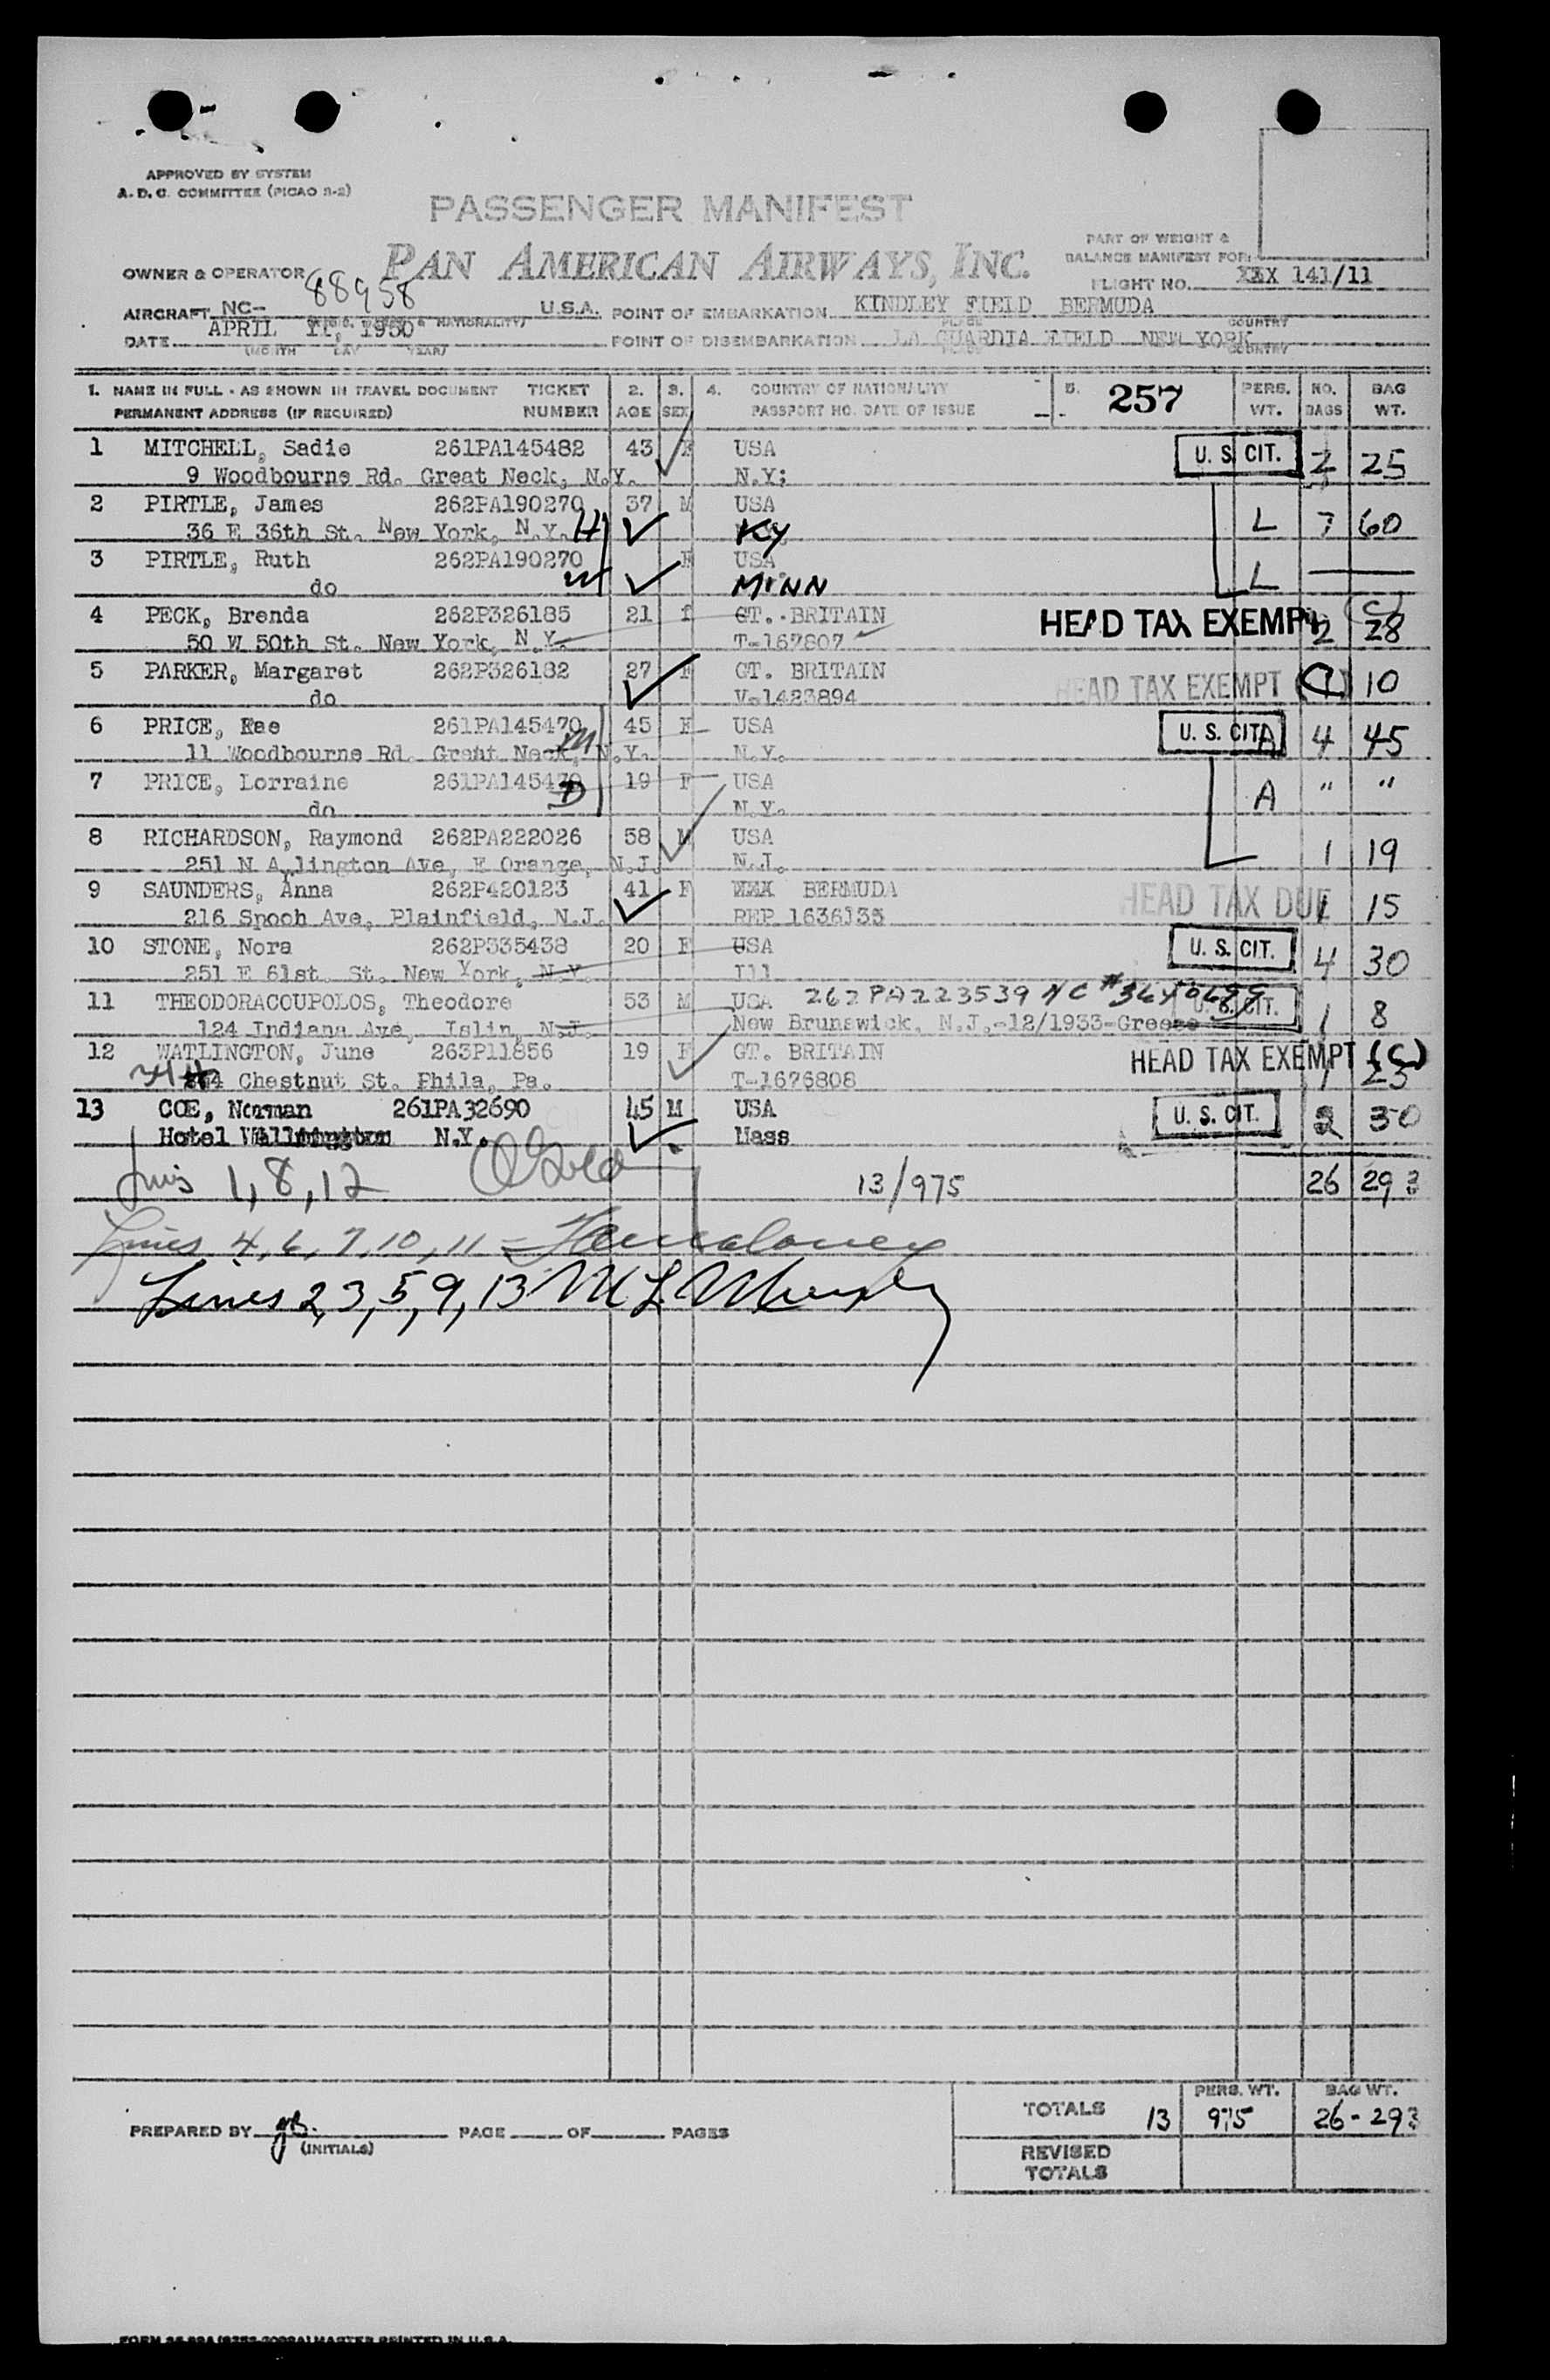 APPROVED BY SYSTEM
A. D. C. COMMITTEE (PICAO 2-2)
PASSENGER MANIFEST
PAN AMERICAN AIRWAYS, INC.
PART OF WEIGHT &
BALANCE MANIFEST FOR:
OWNER & OPERATOR
FLIGHT NO. XXX 141/11
AIRCRAFT NC- 88958 U.S.A. POINT OF EMBARKATION KINDLEY FIELD BERMUDA
& NATIONALITY) PLACE COUNTRY
DATE APRIL 11, 1950 POINT OF DISEMBARKATION LA GUARDIA FIELD NEW YORK
(MONTH DAY YEAR) PLACE COUNTRY
1. NAME IN FULL - AS SHOWN IN TRAVEL DOCUMENT TICKET 2. 3. 4. COUNTRY OF NATIONALITY 5. 257 PERS. NO. BAG
PERMANENT ADDRESS (IF REQUIRED) NUMBER AGE SEX PASSPORT NO. DATE OF ISSUE WT. BAGS WT.
1 MITCHELL, Sadie 261PA145482 43 F USA U. S. CIT. 2 25
9 Woodbourne Rd. Great Neck, N.Y. N.Y;
2 PIRTLE, James 262PA190270 37 M USA L 7 60
36 E 36th St. New York, N.Y. H KY
3 PIRTLE, Ruth 262PA190270 F USA L
do W MINN
4 PECK, Brenda 262P326185 21 f GT. BRITAIN HEAD TAX EXEMPT 2 28 (C)
50 W 50th St. New York, N.Y. T-167807
5 PARKER, Margaret 262P326182 27 F GT. BRITAIN HEAD TAX EXEMPT (C) 10
do V-1423894
6 PRICE, Rae 261PA145470 45 F USA U. S. CIT. A 4 45
11 Woodbourne Rd. Great Neck, N.Y. M N.Y.
7 PRICE, Lorraine 261PA145470 19 F USA A " "
do D N.Y.
8 RICHARDSON, Raymond 262PA222026 58 M USA 1 19
251 N A lington Ave, E Orange, N.J. N.J.
9 SAUNDERS, Anna 262P420123 41 F BERMUDA HEAD TAX DUE 1 15
216 Spooh Ave, Plainfield, N.J. REP 1636135
10 STONE, Nora 262P535438 20 F USA U. S. CIT. 4 30
251 E 61st. St. New York, N.Y. Ill
11 THEODORACOUPOLOS, Theodore 53 M USA 262PA223539 U. S. CIT. 1 8
124 Indiana Ave, Islin, N.J. New Brunswick, N.J.-12/1933-Greece
12 WATLINGTON, June 263P11856 19 F GT. BRITAIN HEAD TAX EXEMPT (C) 1 23
Chestnut St. Phila, Pa. T-1676808
13 COE, Norman 261PA32690 45 M USA U. S. CIT. 2 30
Hotel N.Y. Mass
1, 8, 12 13/975 26 293
Lines 4, 6, 7, 10, 11 -
Lines 2, 3, 5, 9, 13 M L Murphy
TOTALS 13 PERS. WT. 975 BAG WT. 26-293
PREPARED BY (INITIALS) PAGE OF PAGES
REVISED
TOTALS